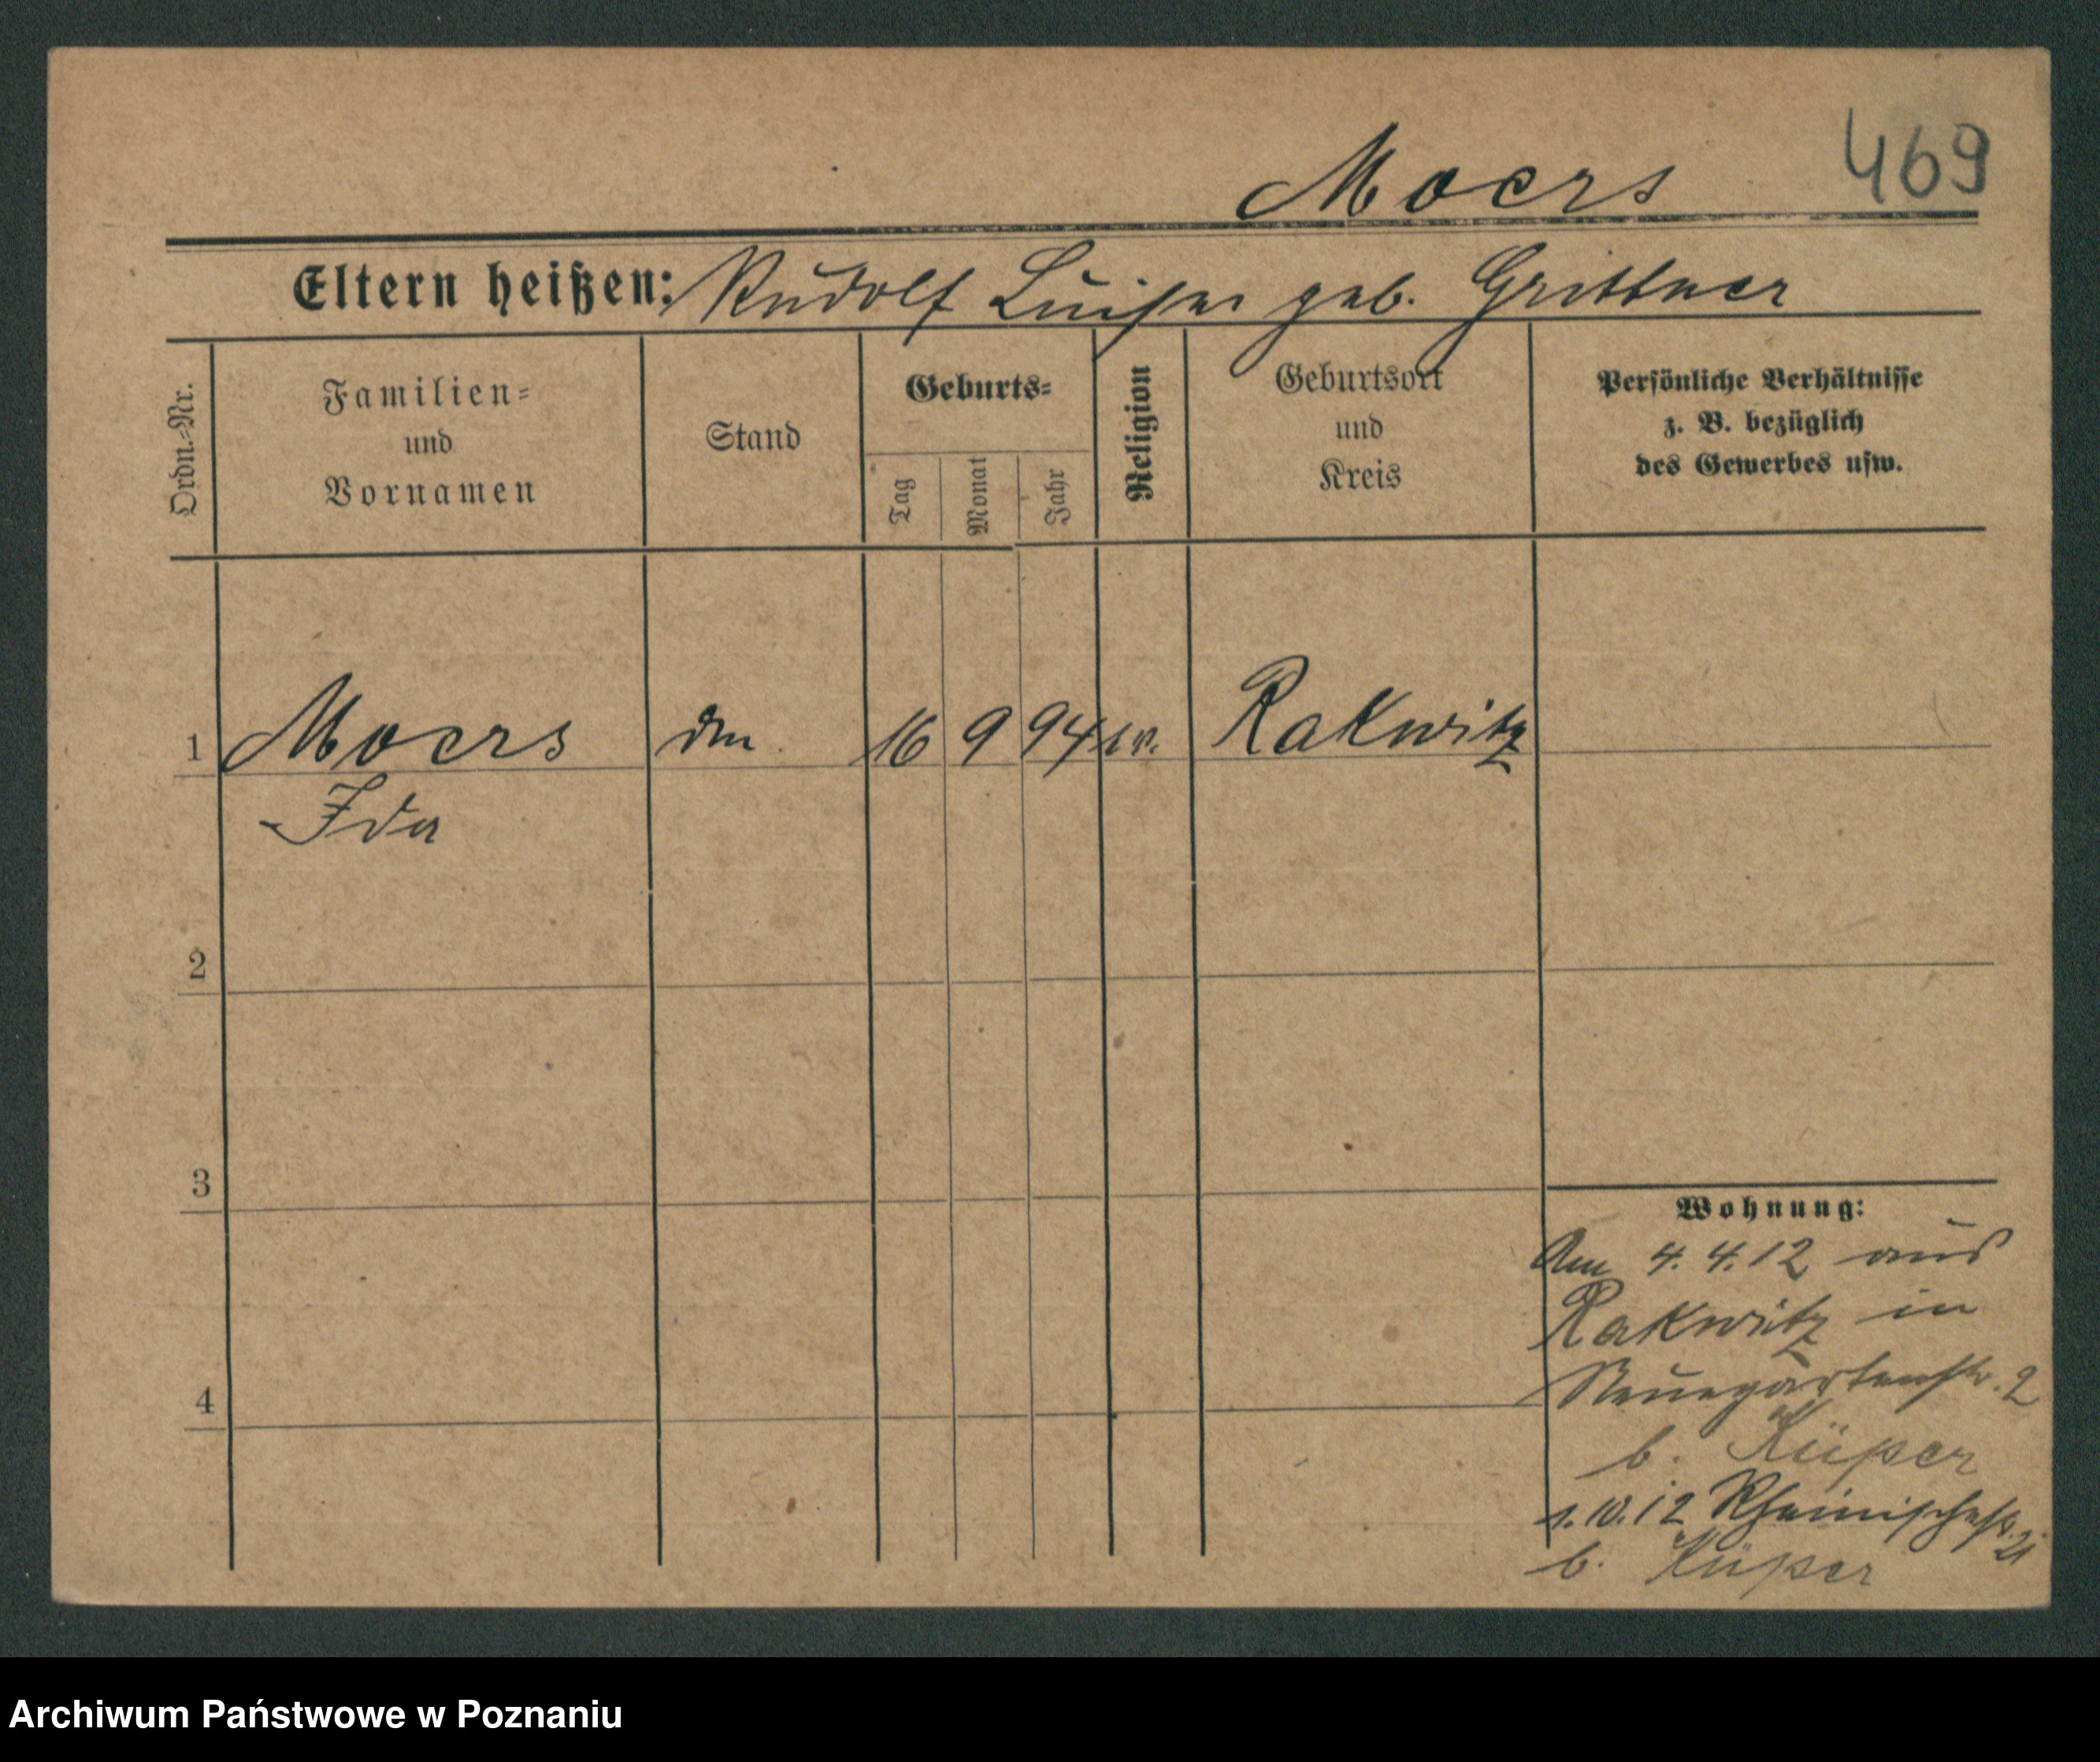 Moers 469
Eltern heißen: Rudolf Luise geb. Grittner
Ordn.-Nr.
Familien-
und
Vornamen
Stand
Geburts-
Tag
Monat
Jahr
Religion
Geburtsort
und
Kreis
Persönliche Verhältnisse
z. B. bezüglich
des Gewerbes usw.
1 Moers 16 9 94 ev. Rakwitz
Ida
2
3
Wohnung:
Am 4. 4. 12 aus
Rakwitz in
Neuegartenstr. 2
4
b. Küper
1. 10. 12 Rheinischestr. 21
b. Küper
Archiwum Państwowe w Poznaniu